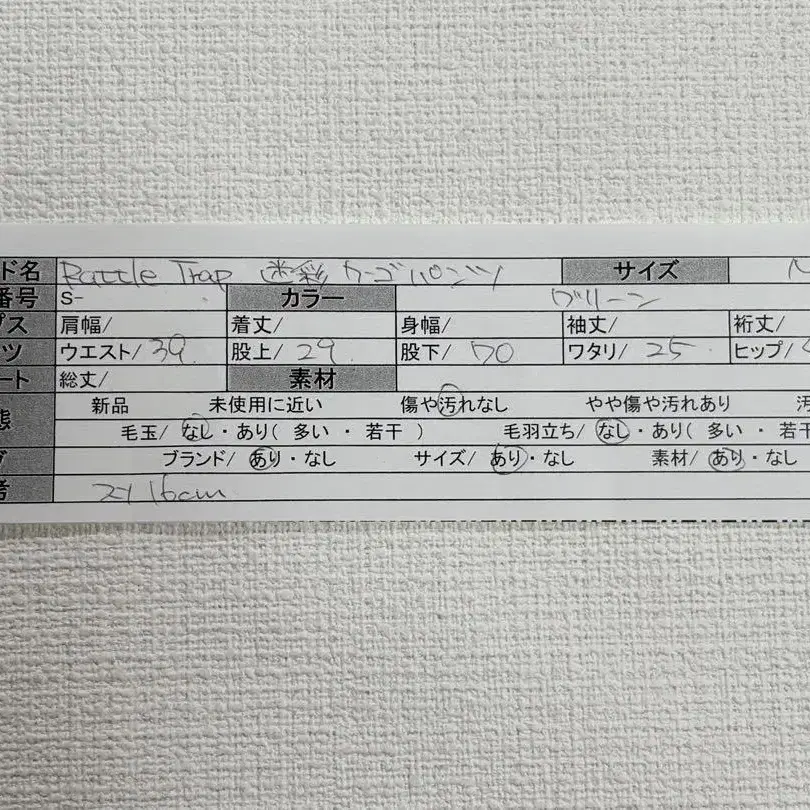 ド名 Rattle Trap 迷彩 カーゴパンツ サイズ
番号 S- カラー グリーン
プス 肩幅/ 着丈/ 身幅/ 袖丈/ 裄丈/
ツ ウエスト/ 39 股上/ 29 股下/ 70 ワタリ/ 25 ヒップ/
ート 総丈/ 素材
態 新品 未使用に近い 傷や汚れなし やや傷や汚れあり 汚
毛玉/ なし・あり( 多い ・ 若干 ) 毛羽立ち/ なし・あり( 多い ・ 若干
グ ブランド/ あり・なし サイズ/ あり・なし 素材/ あり・なし
考 スソ 16cm